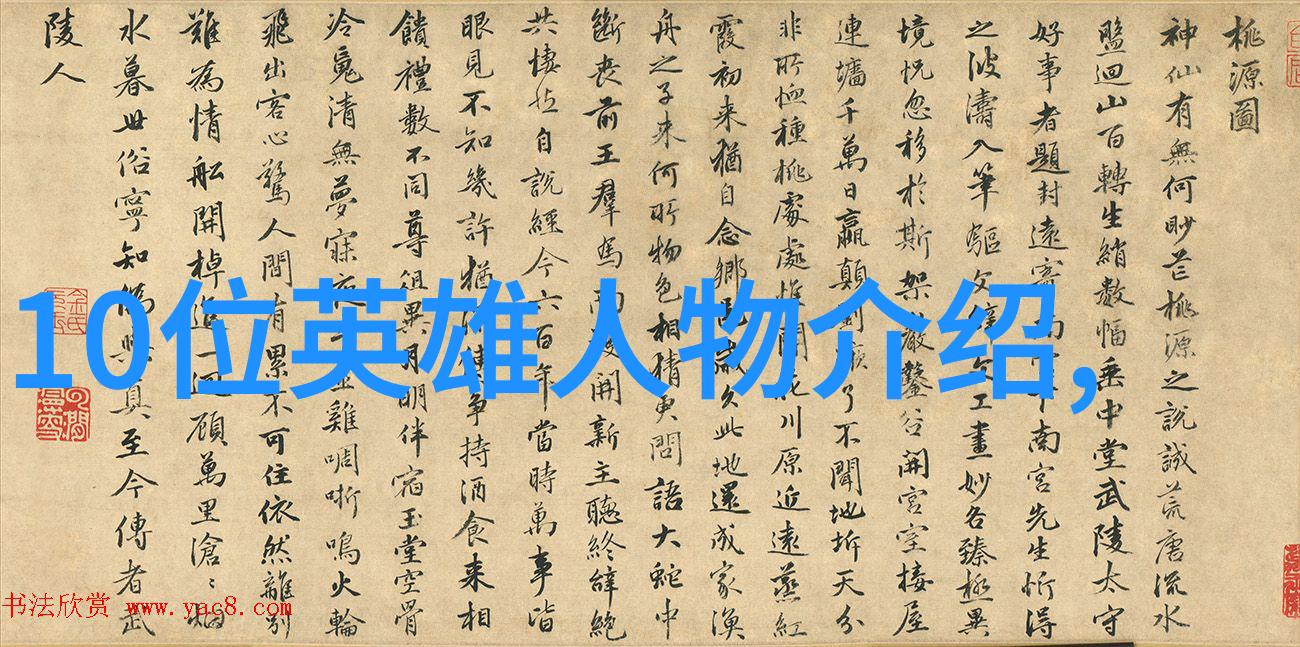 桃源圖
神仙有無何眇芒桃源之說誠荒唐流水
盤迴山百轉生綃數幅垂中堂武陵太守
好事者題封遠寄南宮下南宮先生忻得
之波濤入筆驅文辭文工畫妙各臻極異
境恍忽移於斯架巖鑿谷開宮室接屋
連墻千萬日嬴顛劉蹶了不聞地坼天分
非所恤種桃處處惟開花川原近遠蒸紅
霞初來猶自念鄉邑歲久此地還成家漁
舟之子來何所物色相猜更問語大蛇中
斷喪前王羣馬南渡開新主聽終辭絕
共悽然自說經今六百年當時萬事皆
眼見不知幾許猶流傳爭持酒食來相
饋禮數不同尊俎異月明伴宿玉堂空骨
冷魂清無夢寐夜雞啁哳鳴火輪
飛出客心驚人間有累不可住依然離別
難為情船開棹進一迴顧萬里滄滄烟
水暮世俗寧知偽與真至今傳者武
陵人
10位英雄人物介绍,
书法欣赏 www.yac8.com